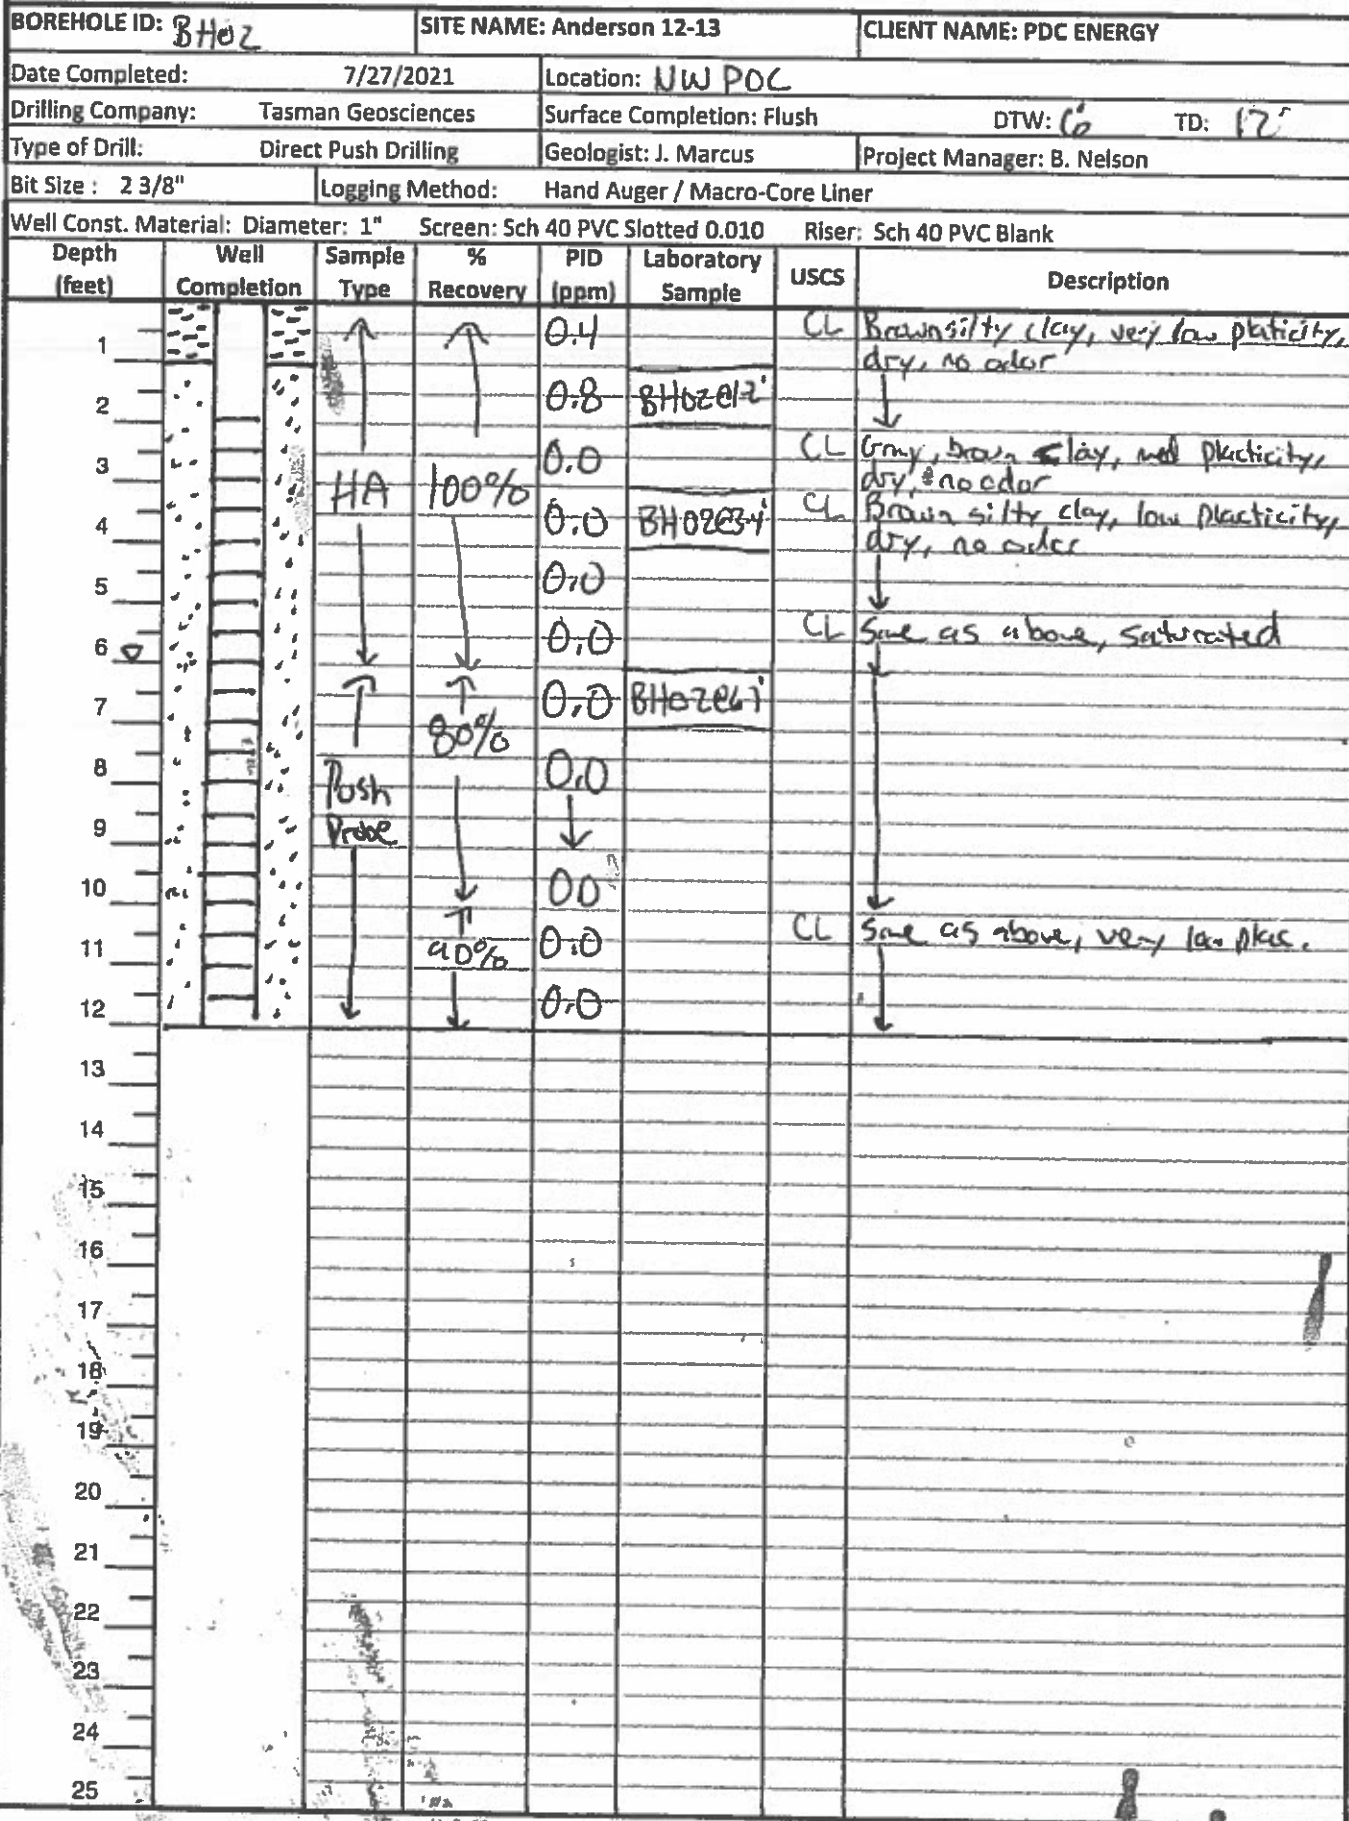 BOREHOLE ID: BH02 SITE NAME: Anderson 12-13 CLIENT NAME: PDC ENERGY
Date Completed: 7/27/2021 Location: NW POC
Drilling Company: Tasman Geosciences Surface Completion: Flush DTW: 6' TD: 12'
Type of Drill: Direct Push Drilling Geologist: J. Marcus Project Manager: B. Nelson
Bit Size : 2 3/8" Logging Method: Hand Auger / Macro-Core Liner
Well Const. Material: Diameter: 1" Screen: Sch 40 PVC Slotted 0.010 Riser: Sch 40 PVC Blank
Depth Well Sample % PID Laboratory USCS Description
(feet) Completion Type Recovery (ppm) Sample
1 0.4 CL Brown silty clay, very low platicity,
dry, no odor
2 0.8 BH02@1-2'
3 0.0 CL Gray, brown clay, med placticity,
dry, no odor
HA 100%
4 0.0 BH02@3-4' CL Brown silty clay, low placticity,
dry, no odor
5 0.0
6 0.0 CL Same as above, saturated
7 0.0 BH02@6-7'
80%
8 Push 0.0
9 Probe
10 00
11 90% 0.0 CL Same as above, very low plas.
12 0.0
13
14
15
16
17
18
19
20
21
22
23
24
25